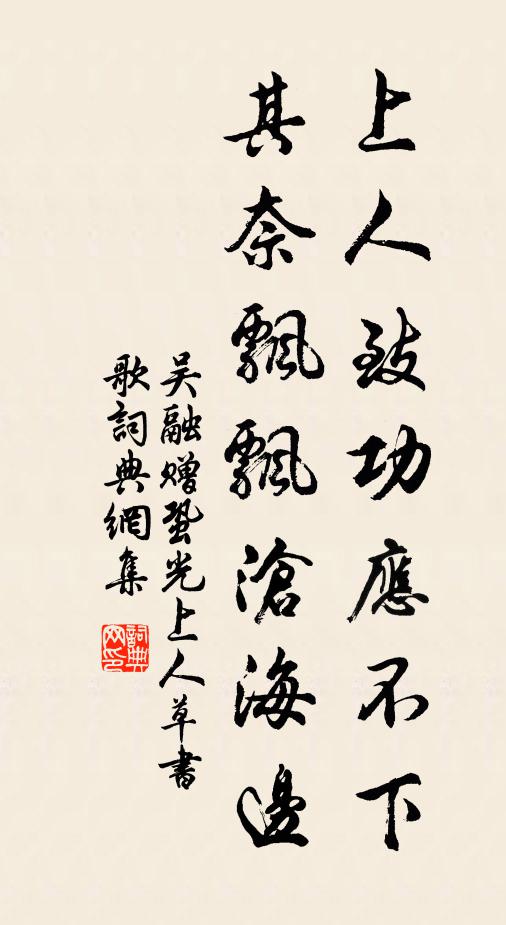 上人致功應不下
其奈飄飄滄海邊
吳融贈蛩光上人草書
歌詞典網集
詞典網印